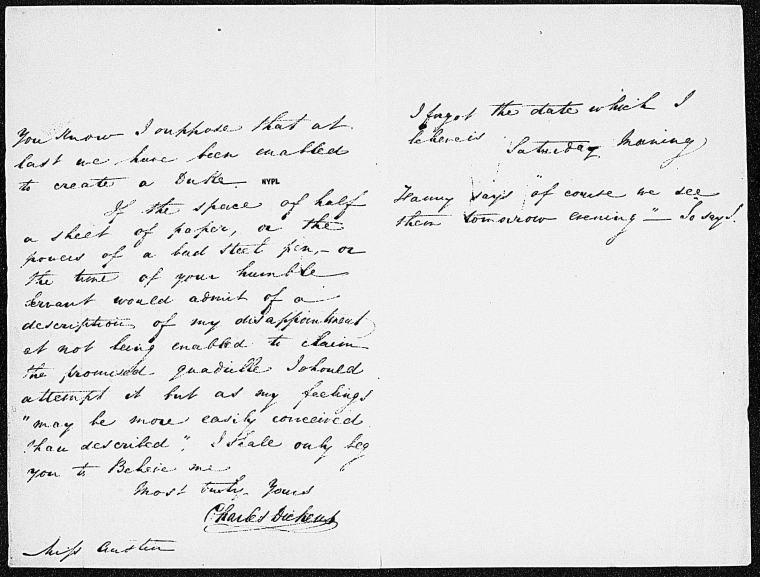 You know I suppose that at
last we have been enabled
to create a Duke. NYPL
If the space of half
a sheet of paper, or the
powers of a bad steel pen, – or
the time of your humble
Servant would admit of a
description of my disappointment
at not being enabled to claim
the promised quadrille I should
attempt it but as my feelings
"may be more easily conceived
than described", I shall only beg
you to Believe me
Most truly Yours
Charles Dickens
Miss Austin
I forgot the date which I
believe is
Saturday Morning
Fanny says "of course we see
them tomorrow evening" – So says I.